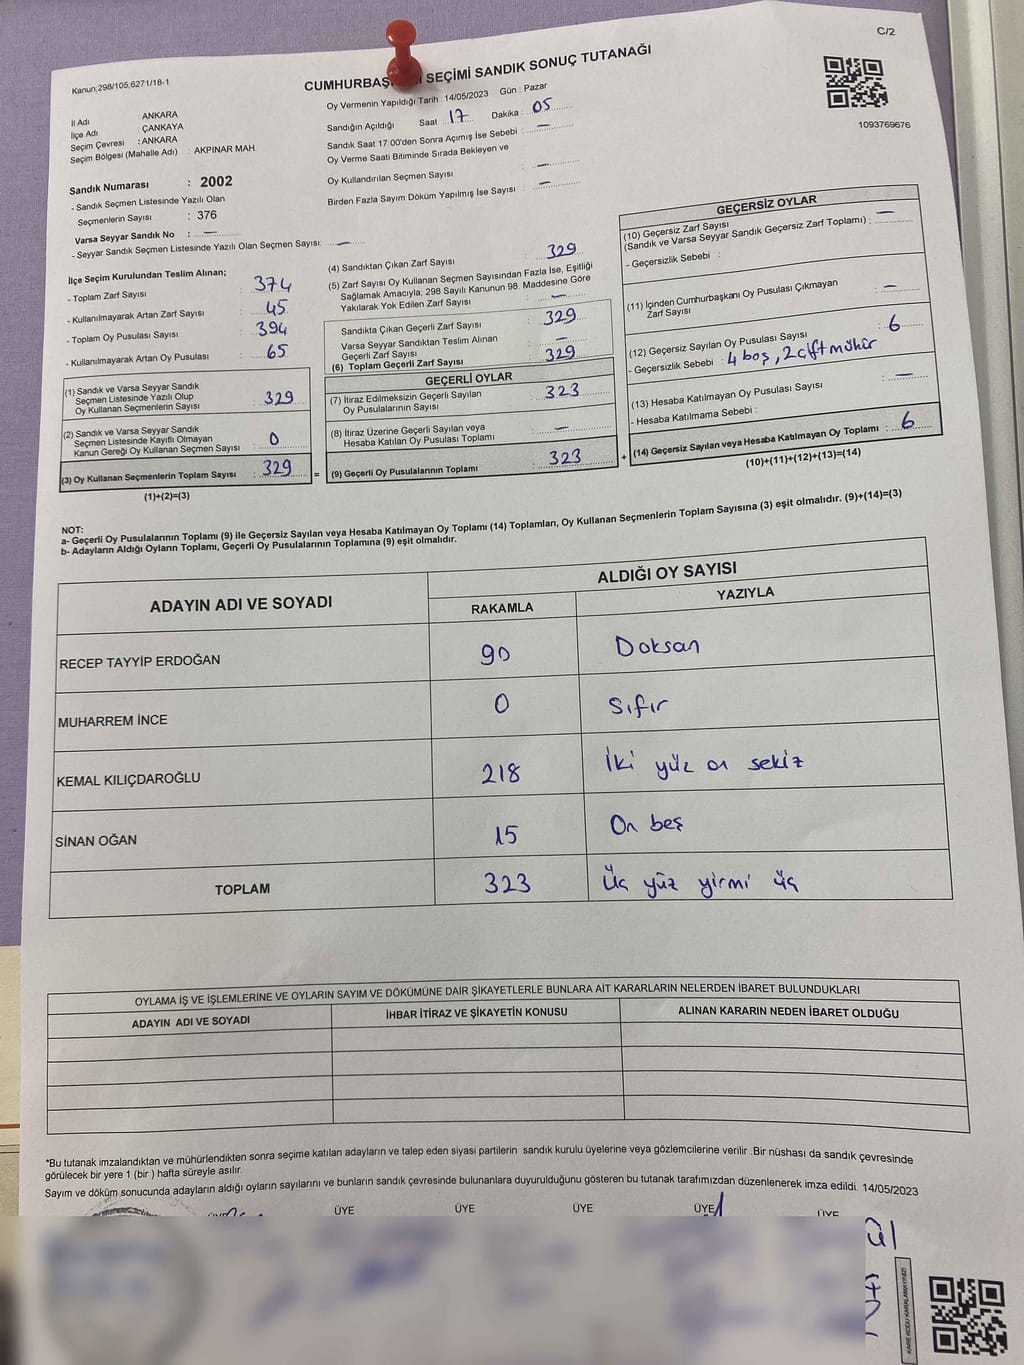 C/2
Kanun:298/105;6271/18-1
CUMHURBAŞ SEÇİMİ SANDIK SONUÇ TUTANAĞI
1093769676
İl Adı : ANKARA
İlçe Adı : ÇANKAYA
Seçim Çevresi : ANKARA
Seçim Bölgesi (Mahalle Adı) : AKPINAR MAH
Sandık Numarası : 2002
- Sandık Seçmen Listesinde Yazılı Olan
Seçmenlerin Sayısı : 376
Varsa Seyyar Sandık No : —
- Seyyar Sandık Seçmen Listesinde Yazılı Olan Seçmen Sayısı: —
Oy Vermenin Yapıldığı Tarih : 14/05/2023 Gün : Pazar
Sandığın Açıldığı Saat : 17 Dakika : 05
Sandık Saat 17:00'den Sonra Açımış İse Sebebi : —
Oy Verme Saati Bitiminde Sırada Bekleyen ve
Oy Kullandırılan Seçmen Sayısı : —
Birden Fazla Sayım Döküm Yapılmış İse Sayısı : —
İlçe Seçim Kurulundan Teslim Alınan;
- Toplam Zarf Sayısı : 374
- Kullanılmayarak Artan Zarf Sayısı : 45
- Toplam Oy Pusulası Sayısı : 394
- Kullanılmayarak Artan Oy Pusulası : 65
(1) Sandık ve Varsa Seyyar Sandık
Seçmen Listesinde Yazılı Olup
Oy Kullanan Seçmenlerin Sayısı : 329
(2) Sandık ve Varsa Seyyar Sandık
Seçmen Listesinde Kayıtlı Olmayan
Kanun Gereği Oy Kullanan Seçmen Sayısı : 0
(3) Oy Kullanan Seçmenlerin Toplam Sayısı : 329 =
(1)+(2)=(3)
(4) Sandıktan Çıkan Zarf Sayısı : 329
(5) Zarf Sayısı Oy Kullanan Seçmen Sayısından Fazla İse, Eşitliği
Sağlamak Amacıyla, 298 Sayılı Kanunun 98. Maddesine Göre
Yakılarak Yok Edilen Zarf Sayısı : —
Sandıkta Çıkan Geçerli Zarf Sayısı : 329
Varsa Seyyar Sandıktan Teslim Alınan
Geçerli Zarf Sayısı : —
(6) Toplam Geçerli Zarf Sayısı : 329
GEÇERLİ OYLAR
(7) İtiraz Edilmeksizin Geçerli Sayılan
Oy Pusulalarının Sayısı : 323
(8) İtiraz Üzerine Geçerli Sayılan veya
Hesaba Katılan Oy Pusulası Toplamı : —
(9) Geçerli Oy Pusulalarının Toplamı : 323 +
GEÇERSİZ OYLAR
(10) Geçersiz Zarf Sayısı
(Sandık ve Varsa Seyyar Sandık Geçersiz Zarf Toplamı) : —
- Geçersizlik Sebebi :
(11) İçinden Cumhurbaşkanı Oy Pusulası Çıkmayan
Zarf Sayısı : —
(12) Geçersiz Sayılan Oy Pusulası Sayısı : 6
- Geçersizlik Sebebi : 4 boş, 2 çift mühür
(13) Hesaba Katılmayan Oy Pusulası Sayısı : —
- Hesaba Katılmama Sebebi :
(14) Geçersiz Sayılan veya Hesaba Katılmayan Oy Toplamı : 6
(10)+(11)+(12)+(13)=(14)
NOT:
a- Geçerli Oy Pusulalarının Toplamı (9) ile Geçersiz Sayılan veya Hesaba Katılmayan Oy Toplamı (14) Toplamları, Oy Kullanan Seçmenlerin Toplam Sayısına (3) eşit olmalıdır. (9)+(14)=(3)
b- Adayların Aldığı Oyların Toplamı, Geçerli Oy Pusulalarının Toplamına (9) eşit olmalıdır.
ADAYIN ADI VE SOYADI
ALDIĞI OY SAYISI
RAKAMLA YAZIYLA
RECEP TAYYİP ERDOĞAN 90 Doksan
MUHARREM İNCE 0 Sıfır
KEMAL KILIÇDAROĞLU 218 İki yüz on sekiz
SİNAN OĞAN 15 On beş
TOPLAM 323 Üç yüz yirmi üç
OYLAMA İŞ VE İŞLEMLERİNE VE OYLARIN SAYIM VE DÖKÜMÜNE DAİR ŞİKAYETLERLE BUNLARA AİT KARARLARIN NELERDEN İBARET BULUNDUKLARI
ADAYIN ADI VE SOYADI İHBAR İTİRAZ VE ŞİKAYETİN KONUSU ALINAN KARARIN NEDEN İBARET OLDUĞU
*Bu tutanak imzalandıktan ve mühürlendikten sonra seçime katılan adayların ve talep eden siyasi partilerin sandık kurulu üyelerine veya gözlemcilerine verilir .Bir nüshası da sandık çevresinde
görülecek bir yere 1 (bir ) hafta süreyle asılır.
Sayım ve döküm sonucunda adayların aldığı oyların sayılarını ve bunların sandık çevresinde bulunanlara duyurulduğunu gösteren bu tutanak tarafımızdan düzenlenerek imza edildi. 14/05/2023
ÜYE ÜYE ÜYE ÜYE ÜYE
KARE KODU KARALAMAYINIZ!